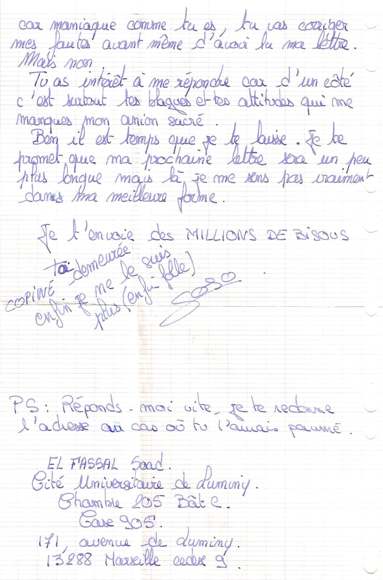 car maniaque comme tu es, tu vas corriger
mes fautes avant même d'avoir lu ma lettre.
Mais non
Tu as intérêt à me répondre car d'un côté
c'est surtout tes blagues et tes attitudes qui me
manques mon amion sacré.
Bon il est temps que je te laisse. Je te
promet que ma prochaine lettre sera un peu
plus longue mais là je me sens pas vraiment
dans ma meilleure forme.
Je t'envoie des MILLIONS DE BISOUS
Ta demeurée
COPINE enfin je ne le suis
plus (enfin folle)
Soso
PS: Réponds-moi vite, je te redonne
l'adresse au cas où tu l'aurais paumé.
EL FASSAL Saad.
Cité Universitaire de Luminy.
Chambre 205 Bât C.
Case 905.
171, avenue de Luminy.
13288 Marseille cedex 9.